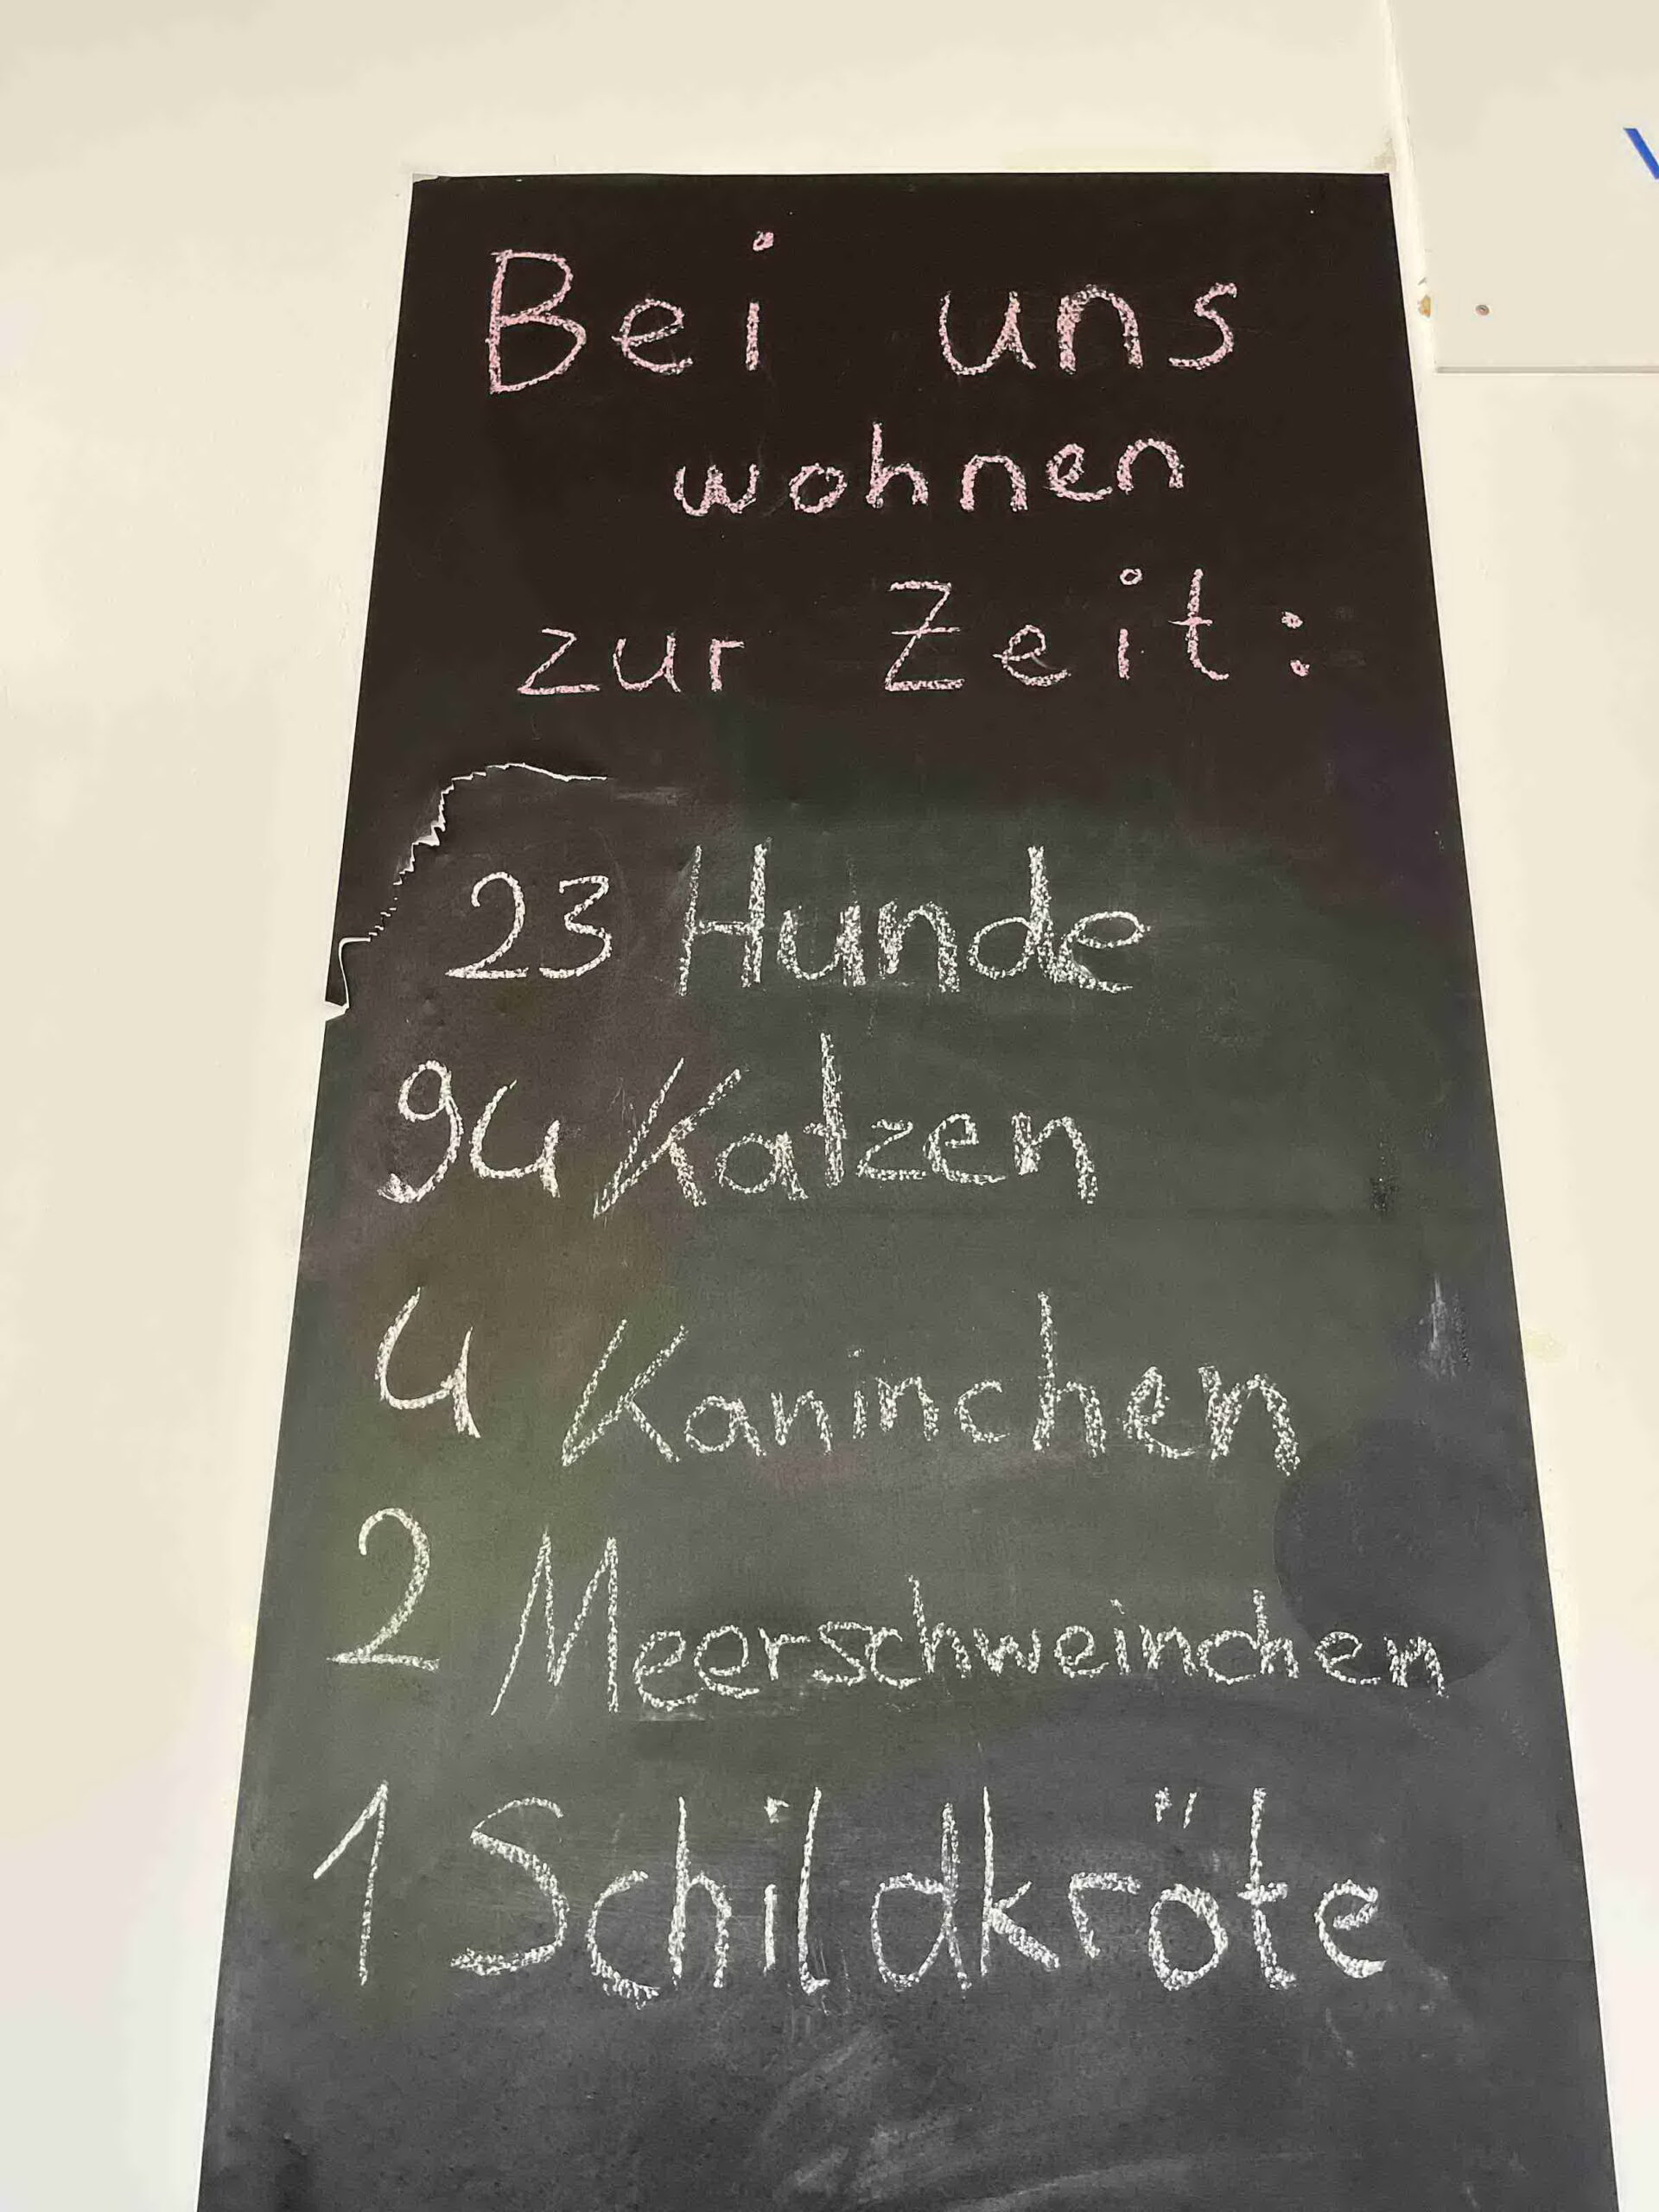 Bei uns
wohnen
zur Zeit:
23 Hunde
94 Katzen
4 Kaninchen
2 Meerschweinchen
1 Schildkröte